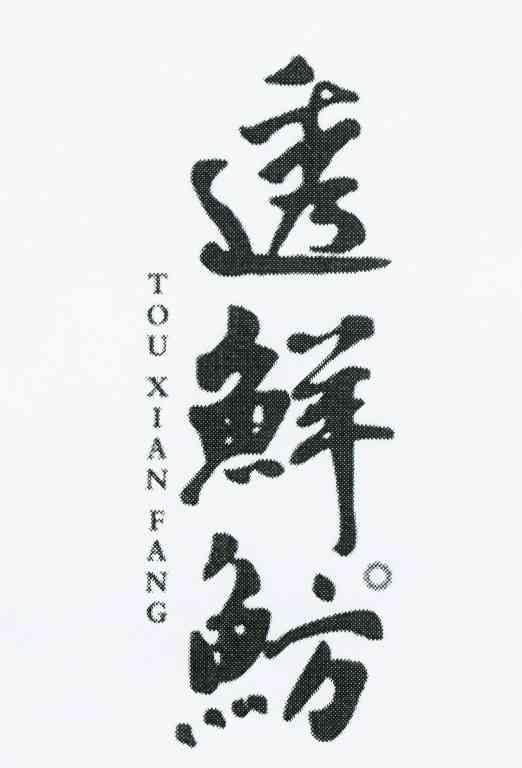 透鮮魴
TOU XIAN FANG